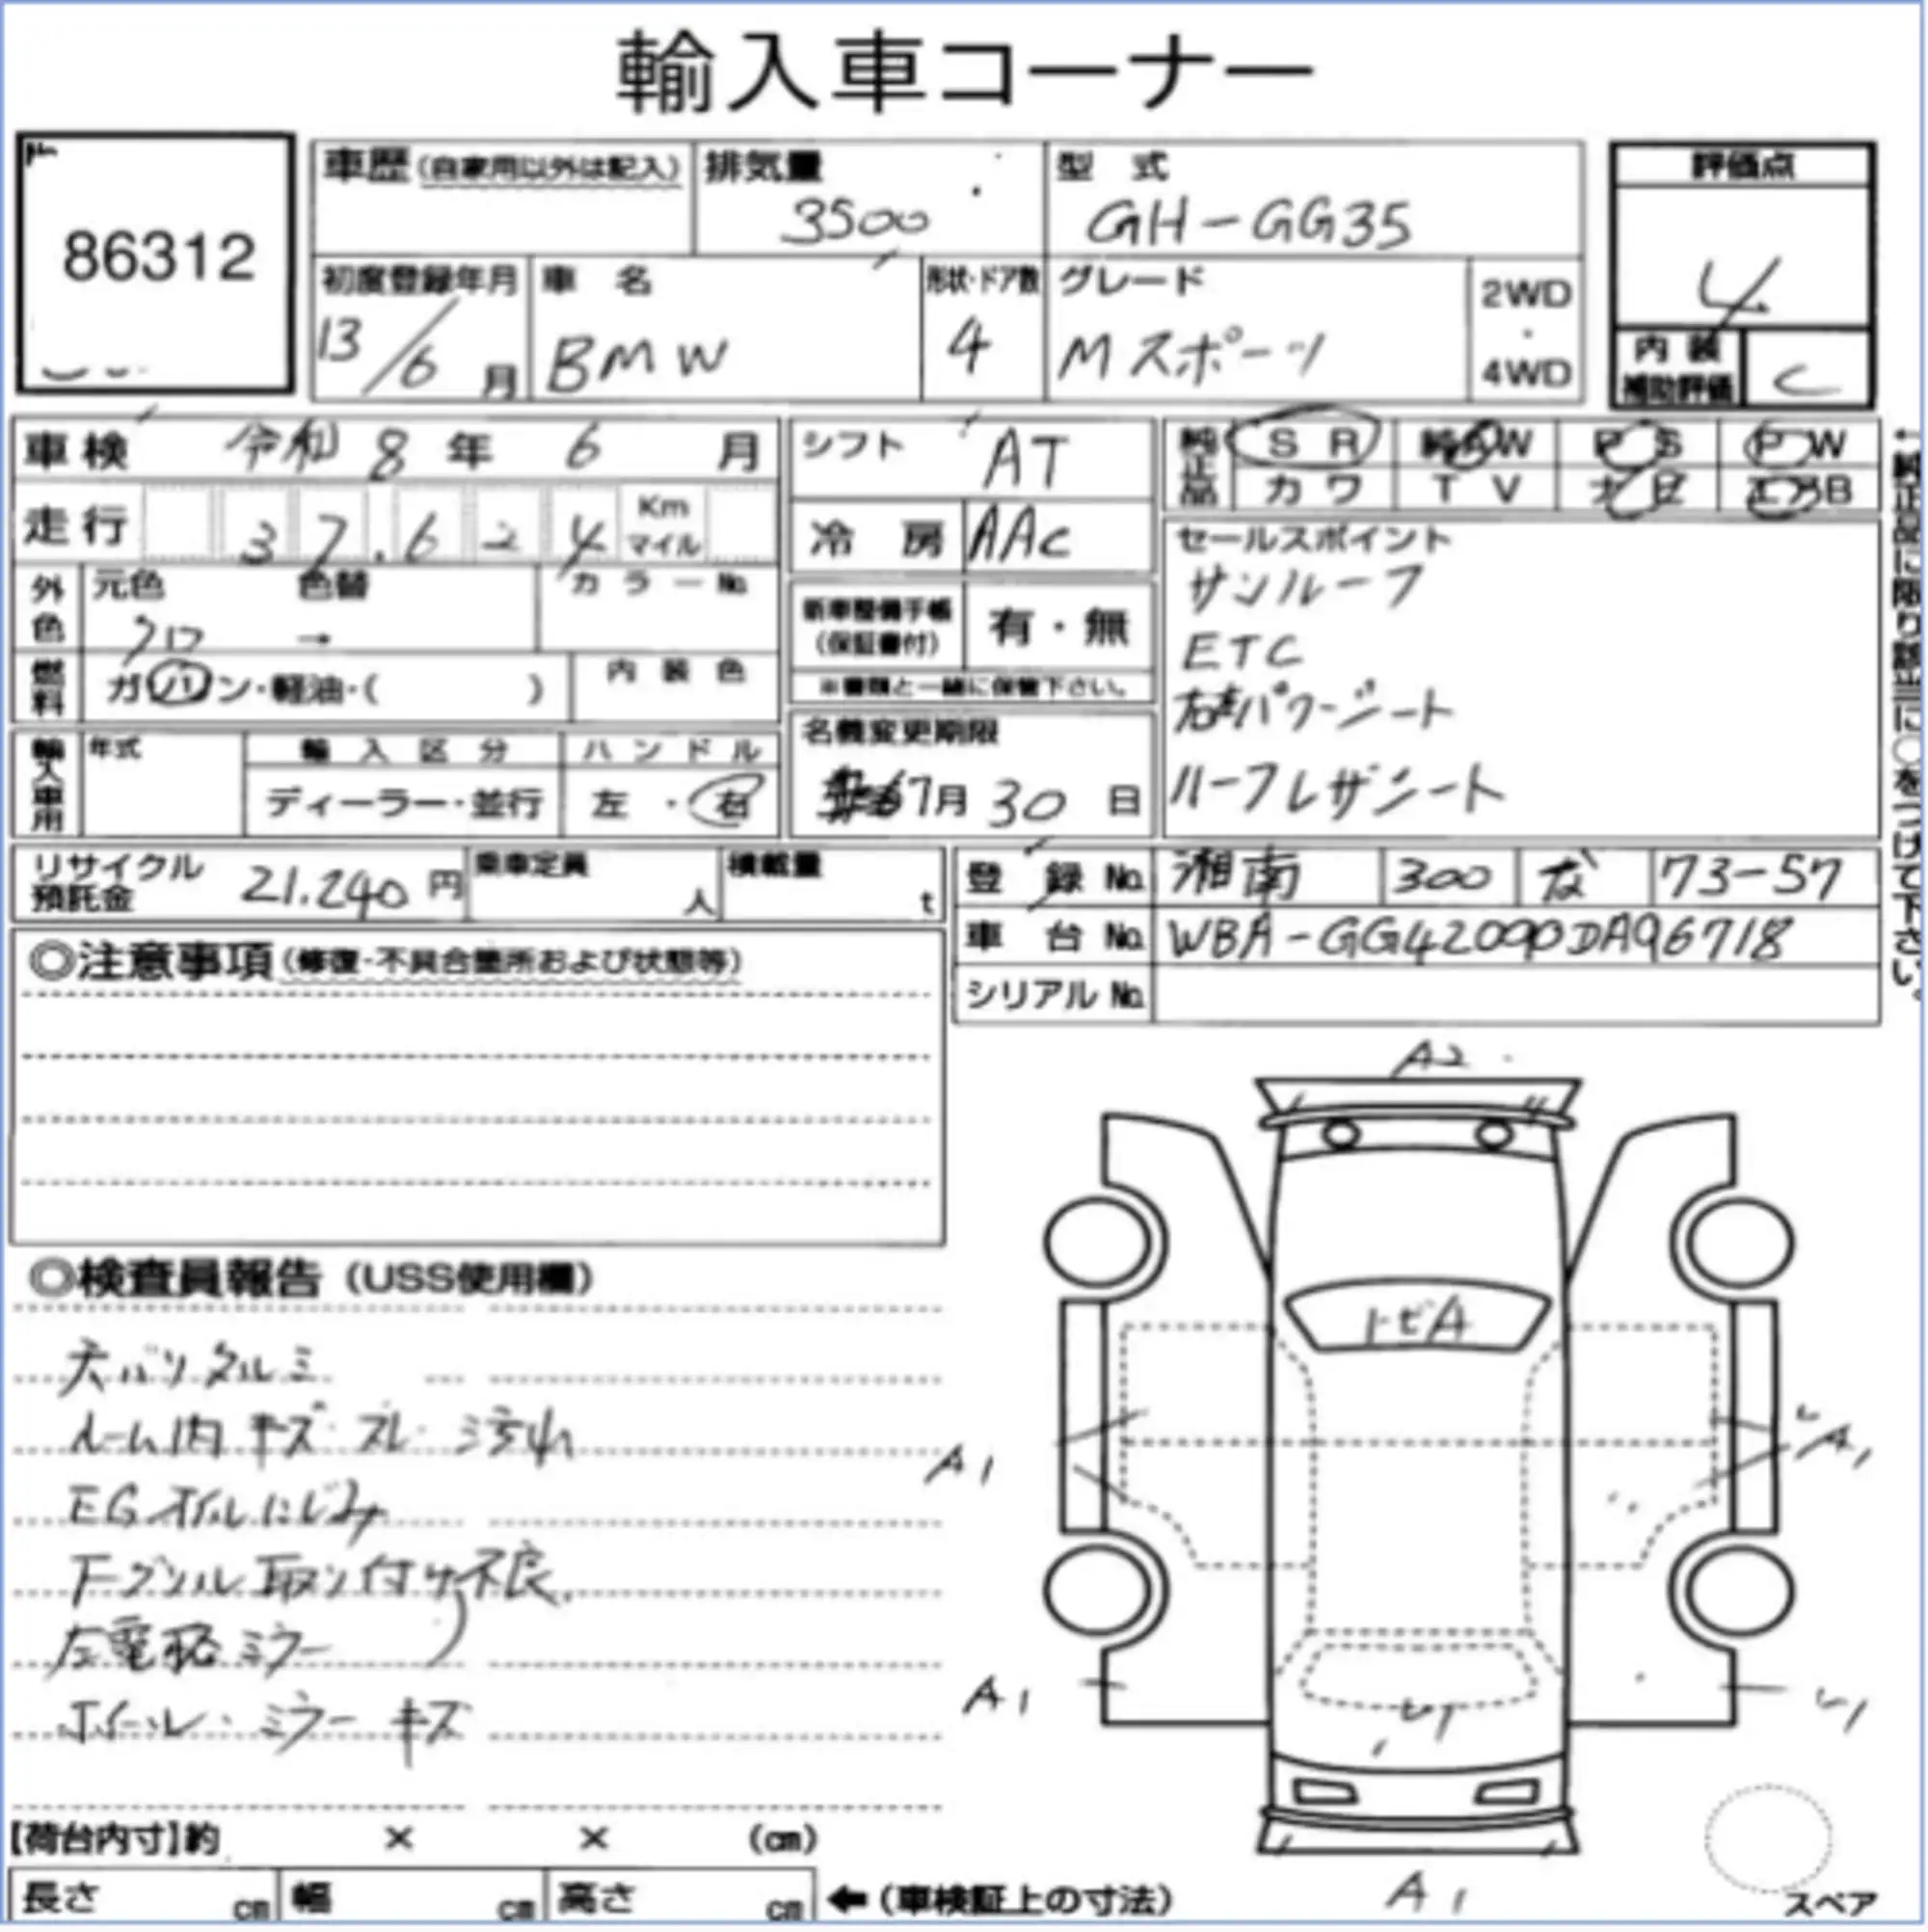 輸入車コーナー
86312
車歴(自家用以外は記入)
排気量
3500
型 式
GH-GG35
評価点
4
内装
補助評価
C
初度登録年月
13/6月
車 名
BMW
形状・ドア数
4
グレード
Mスポーツ
2WD
・
4WD
車検 令和8年6月
走行 37.624 Km マイル
シフト AT
冷房 AAC
純正品 SR 純AW PS PW
カワ TV ナビ エアB
←純正品に限り該当に○をつけて下さい。
外色 元色 色替 カラーNo.
クロ →
燃料 ガソリン・軽油・( )
内装色
新車整備手帳
(保証書付)
有・無
※書類と一緒に保管下さい。
セールスポイント
サンルーフ
ETC
右左パワーシート
ハーフレザシート
輸入車用 年式 輸入区分 ハンドル
ディーラー・並行 左・右
名義変更期限
7月30日
リサイクル
預託金 21.240円
乗車定員 人
積載量 t
登録No. 湘南 300 な 73-57
車台No. WBA-GG42090DA96718
シリアルNo.
◎注意事項(修復・不具合箇所および状態等)
◎検査員報告(USS使用欄)
天バリタルミ
ルーム内キズ・スレ・汚れ
EGオイルにじみ
下グリル取り付け不良
左電格ミラー
ホイール・ミラーキズ
A2
トビA
A1
A1
A1
U1
U1
A1
スペア
【荷台内寸】約 × × (cm)
長さ cm 幅 cm 高さ cm ←(車検証上の寸法)